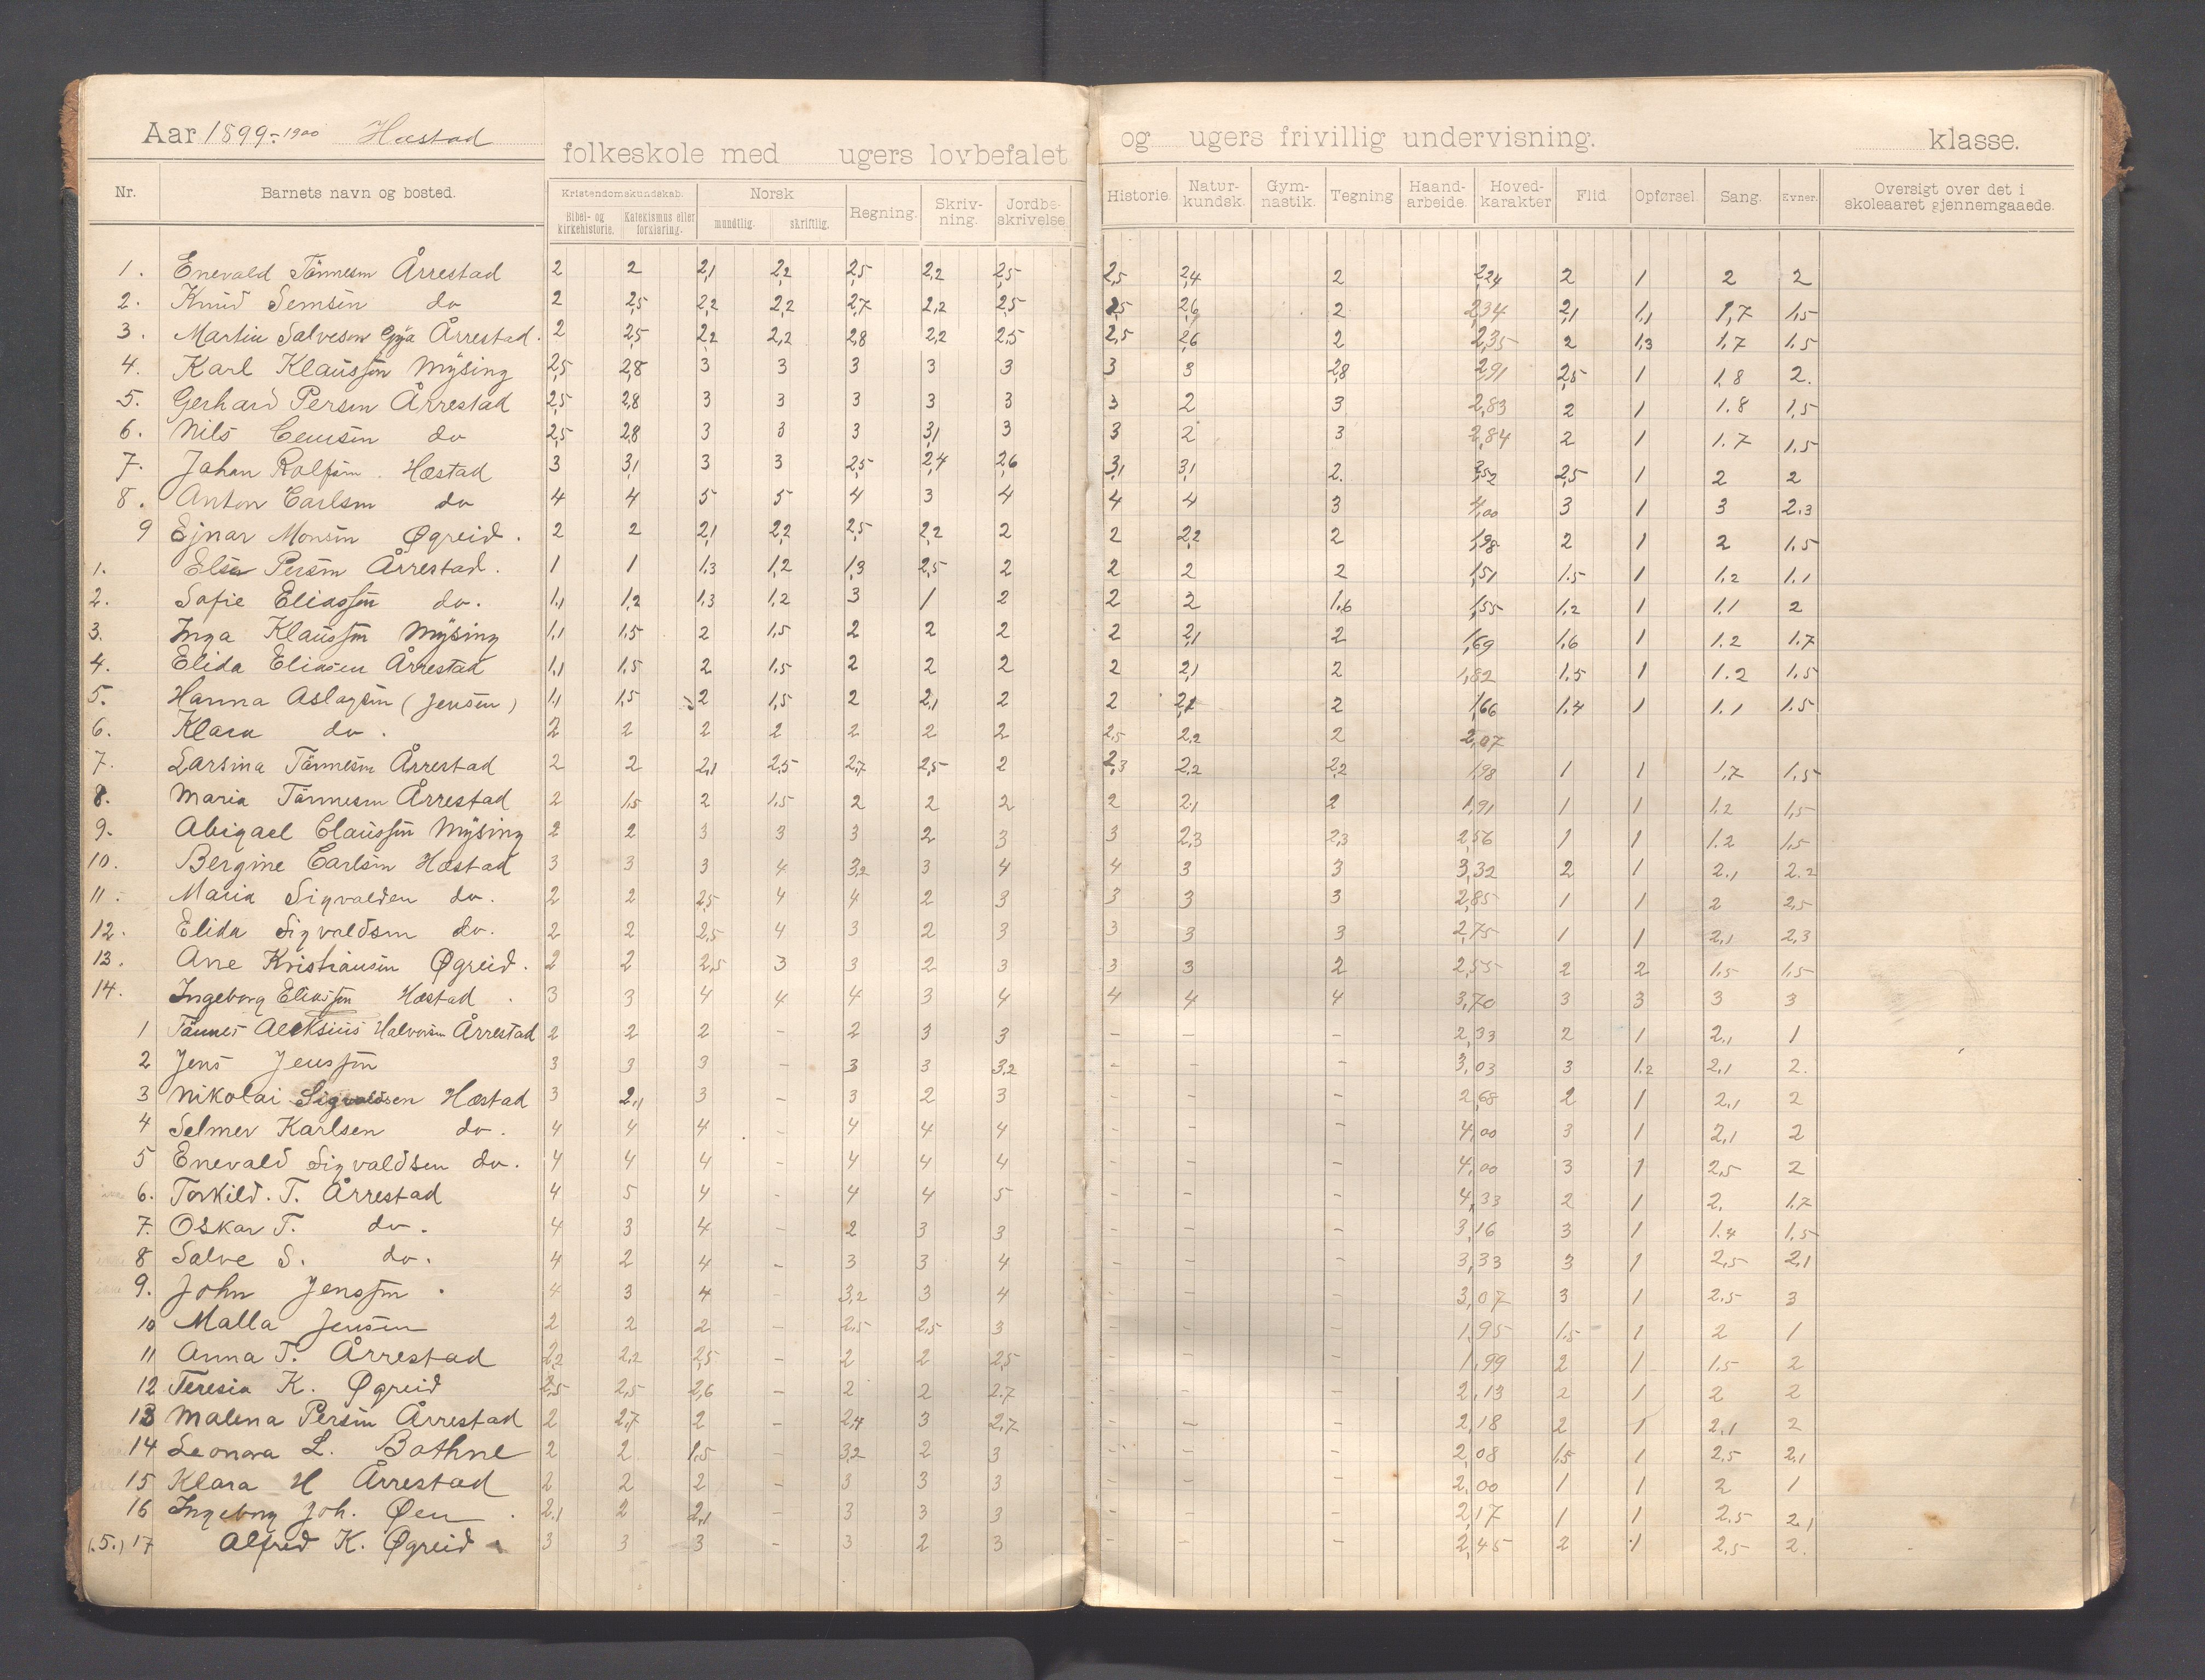 Aar 1899-1900 Hæstad folkeskole med ugers lovbefalet og ugers frivillig undervisning. klasse.
Nr. Barnets navn og bosted. Kristendomskundskab. Norsk Regning. Skriv-ning. Jordbe-skrivelse Historie. Natur-kundsk. Gym-nastik. Tegning Haand-arbeide. Hoved-karakter Flid. Opførsel. Sang. Evner. Oversigt over det i skoleaaret gjennemgaaede.
Bibel- og kirkehistorie. Katekismus eller forklaring. mundtlig. skriftlig.
1. Enevald Tønnesen Årrestad 2 2 2,1 2,2 2,5 2,2 2,5 2,5 2,4 2 2,24 2 1 2 2
2. Knud Semsen do 2 2,5 2,2 2,2 2,7 2,2 2,5 2,5 2,6 2 2,34 2,1 1,1 1,7 1,5
3. Martin Salvesen Gya Årrestad. 2 2,5 2,2 2,2 2,8 2,2 2,5 2,5 2,6 2 2,35 2 1,3 1,7 1,5
4. Karl Klaussen Mysing 2,5 2,8 3 3 3 3 3 3 3 2,8 2,91 2,5 1 1,8 2.
5. Gerhard Persen Årrestad 2,5 2,8 3 3 3 3 3 3 2 3 2,83 2 1 1.8 1,5
6. Nils do 2,5 2,8 3 3 3 3,1 3 3 2 3 2,84 2 1 1.7 1,5
7. Johan Rolfsen. Hæstad 3 3,1 3 3 2,5 2,4 2,6 3,1 3,1 2. 2,5 1 2 2
8. Anton Carlsen do 4 4 5 5 4 3 4 4 4 3 4,00 3 1 3 2.3
9 Ejnar Monsen Øgreid. 2 2 2,1 2,2 2,5 2,2 2 2 2,2 2 1,98 2 1 2 1.5
1. Elsa Persen Årrestad. 1 1 1,3 1,2 1,3 2,5 2 2 2 2 1,51 1.5 1 1.2 1.1
2. Sofie Eliassen do. 1,1 1,2 1,3 1,2 3 1 2 2 2 1,6 1,55 1.2 1 1.1 2
3. Inga Klaussen Mysing 1,1 1,5 2 1,5 2 2 2 2 2,1 2 1,69 1,6 1 1.2 1.7
4. Elida Eliasen Årrestad 1,1 1,5 2 1,5 2 2 2 2 2,1 2 1,82 1.5 1 1.2 1.5
5. Hanna Aslagsen (Jensen) 1,1 1,5 2 1,5 2 2,1 2 2 2,1 2 1,66 1.4 1 1.1 1.5
6. Klara do. 2 2 2 2 2 2 2 2,5 2,2 2 2,07
7. Larsina Tønnesen Årrestad 2 2 2,1 2,5 2,7 2,5 2 2,3 2,2 2,2 1,98 1 1 1,7 1,5
8. Maria Tønnesen Årrestad 2 1,5 2 1,5 2 2 2 2 2,1 2 1,91 1 1 1,2 1,5
9. Abigael Claussen Mysing 2 2 3 3 3 2 3 3 2,3 2,3 2,56 1 1 1.2 1,5
10. Bergine Carlsen Hæstad 3 3 3 4 3,2 3 4 4 3 3 3,32 2 1 2,1 2.2
11. Maria Sigvalden do. 2 2 2,5 4 4 2 3 3 3 3 2,85 1 1 2 2,5
12. Elida Sigvaldsen do. 2 2 2,5 4 3 2 3 3 3 3 2,75 1 1 2,1 2,3
13. Ane Kristiansen Øgreid. 2 2 2,5 3 3 2 3 3 3 2 2,55 2 2 1,5 1,5
14. Ingeborg Eliassen Hæstad. 3 3 4 4 4 3 4 4 4 4 3,70 3 3 3 3
1 Tønnes Aleksius Halvorsen Årrestad 2 2 2 - 2 3 3 - - - 2,33 2 1 2,1 1
2 Jens Jenssen 3 3 3 - 3 3 3,2 - - - 3,03 3 1.2 2,1 2.
3 Nikolai Sigvaldsen Hæstad 3 2,1 3 - 3 2 3 - - - 2,68 2 1 2,1 2
4 Selmer Karlsen do. 4 4 4 - 4 4 4 - - - 4,00 3 1 2,1 2
5 Enevald Sigvaldsen do. 4 4 4 - 4 4 4 - - - 4,00 3 1 2,5 2
6. Torkild. T. Årrestad 4 5 4 - 4 4 5 - - - 4,33 2 1 2. 1.7
7. Oskar T. do. 4 3 4 - 2 3 3 - - - 3,16 3 1 1.4 1.5
8 Salve S. do. 4 2 4 - 3 3 4 - - - 3,33 3 1 2,5 2,1
9. John Jenssen. 4 3 4 - 3,2 3 4 - - - 3,07 3 1 2.5 3
10 Malla Jensen 2 2 2 - 2,5 2,5 3 - - - 1,95 1.5 1 2 1
11 Anna T. Årrestad 2,2 2,2 2,5 - 2 2 2,5 - - - 1,99 2 1 1.5 2
12 Teresia K. Øgreid 2,5 2,5 2,6 - 2 2 2.7 - - - 2,13 2 1 2 2
13 Malena Persen Årrestad 2 2,7 2 - 2,4 3 2,7 - - - 2,18 2 1 2,1 2
14 Leonora L. Bothne 2 2 1,5 - 3,2 2 3 - - - 2,08 1,5 1 2.5 2,1
15 Klara H Årrestad 2 2 2 - 3 3 3 - - - 2,00 1 1 2 1
16 Ingeborg Joh. Øen. 2,1 2 2,1 - 3 3 3 - - - 2,17 1 1 2.5 2,1
(.5.) 17 Alfred K. Øgreid 3 3 3 - 3 2 3 - - - 2,45 2 1 2,5 2.